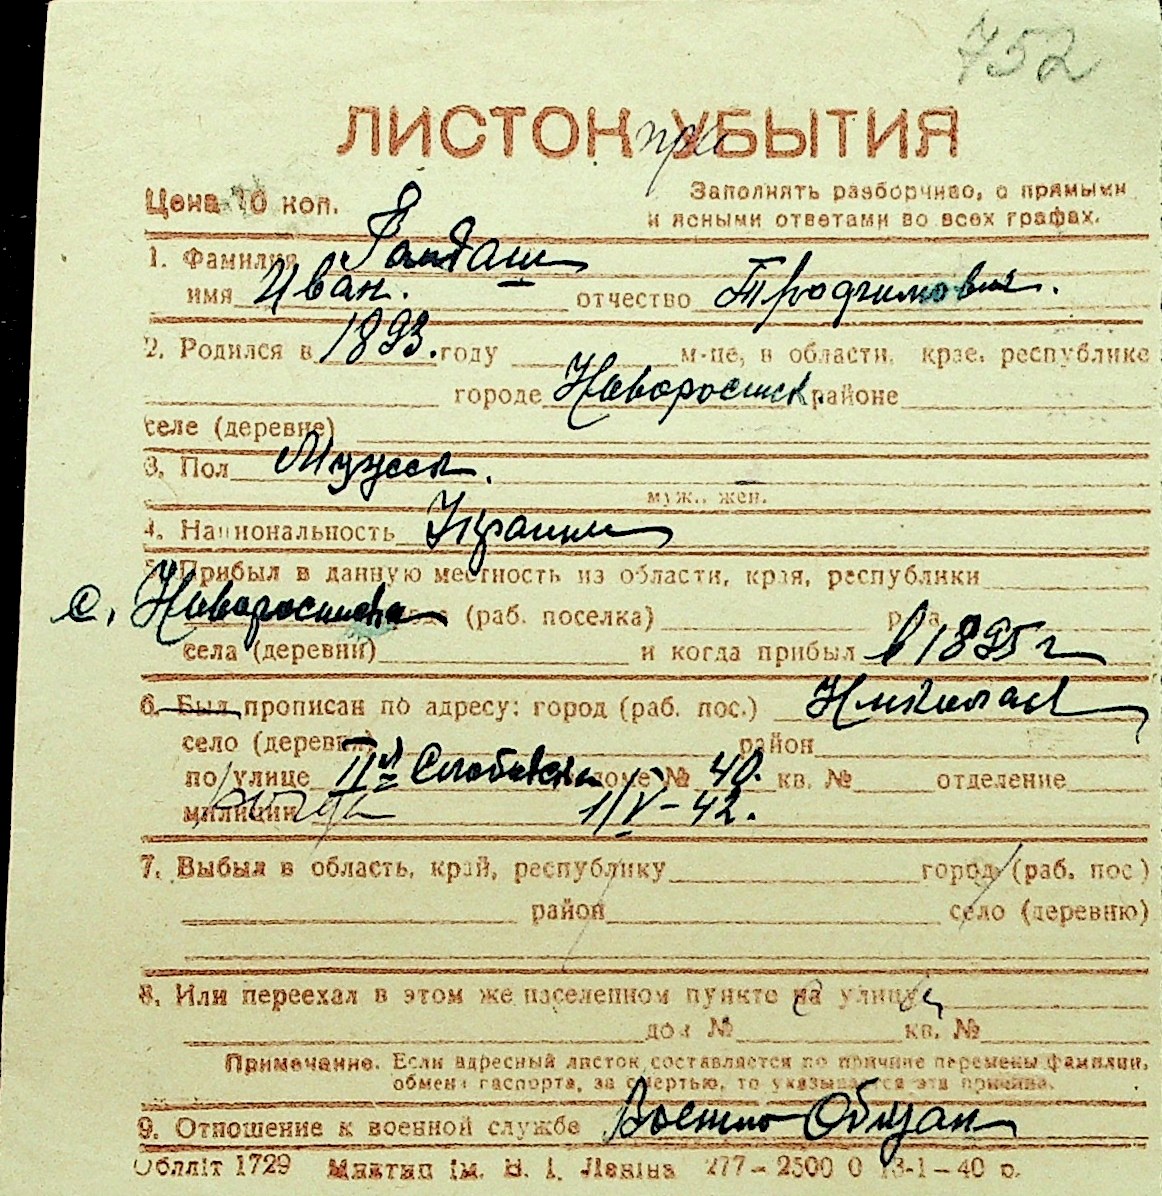 752
ЛИСТОК при УБЫТИЯ
Цена 10 коп.
Заполнять разборчиво, с прямыми
и ясными ответами во всех графах.
1. Фамилия
имя Иван. отчество Трофимович.
2. Родился в 1893. году м-це, в области, крае, республике
городе Новоросийск. районе
селе (деревне)
3. Пол Мужск.
муж., жен.
4. Национальность Украин
5. Прибыл в данную местность из области, края, республики
с. Новоросийска (раб. поселка)
села (деревни) и когда прибыл в 1895 г
6. Был прописан по адресу: город (раб. пос.) Николаев
село (деревня) район
по улице II я Слободская доме № 40. кв. № отделение
милиции 1/V-42.
7. Выбыл в область, край, республику город (раб. пос)
район село (деревню)
8. Или переехал в этом же населенном пункте на улицу
дом № кв. №
Примечание. Если адресный листок составляется по причине перемены фамилии,
обмена паспорта, за смертью, то указывается эта причина.
9. Отношение к военной службе Военно Обязан
Облліт 1729 Миктип ім. В. І. Леніна 277-2500 0 13-1-40 р.